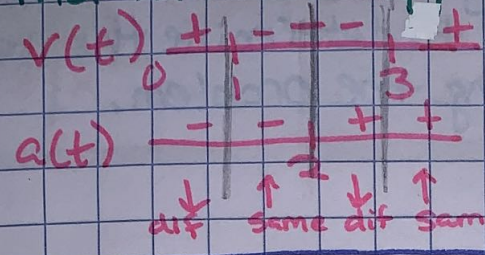 v(t) + - - - +
0 1 3
a(t) - - + +
2
↓ ↑ ↓ ↑
dif same dif sam